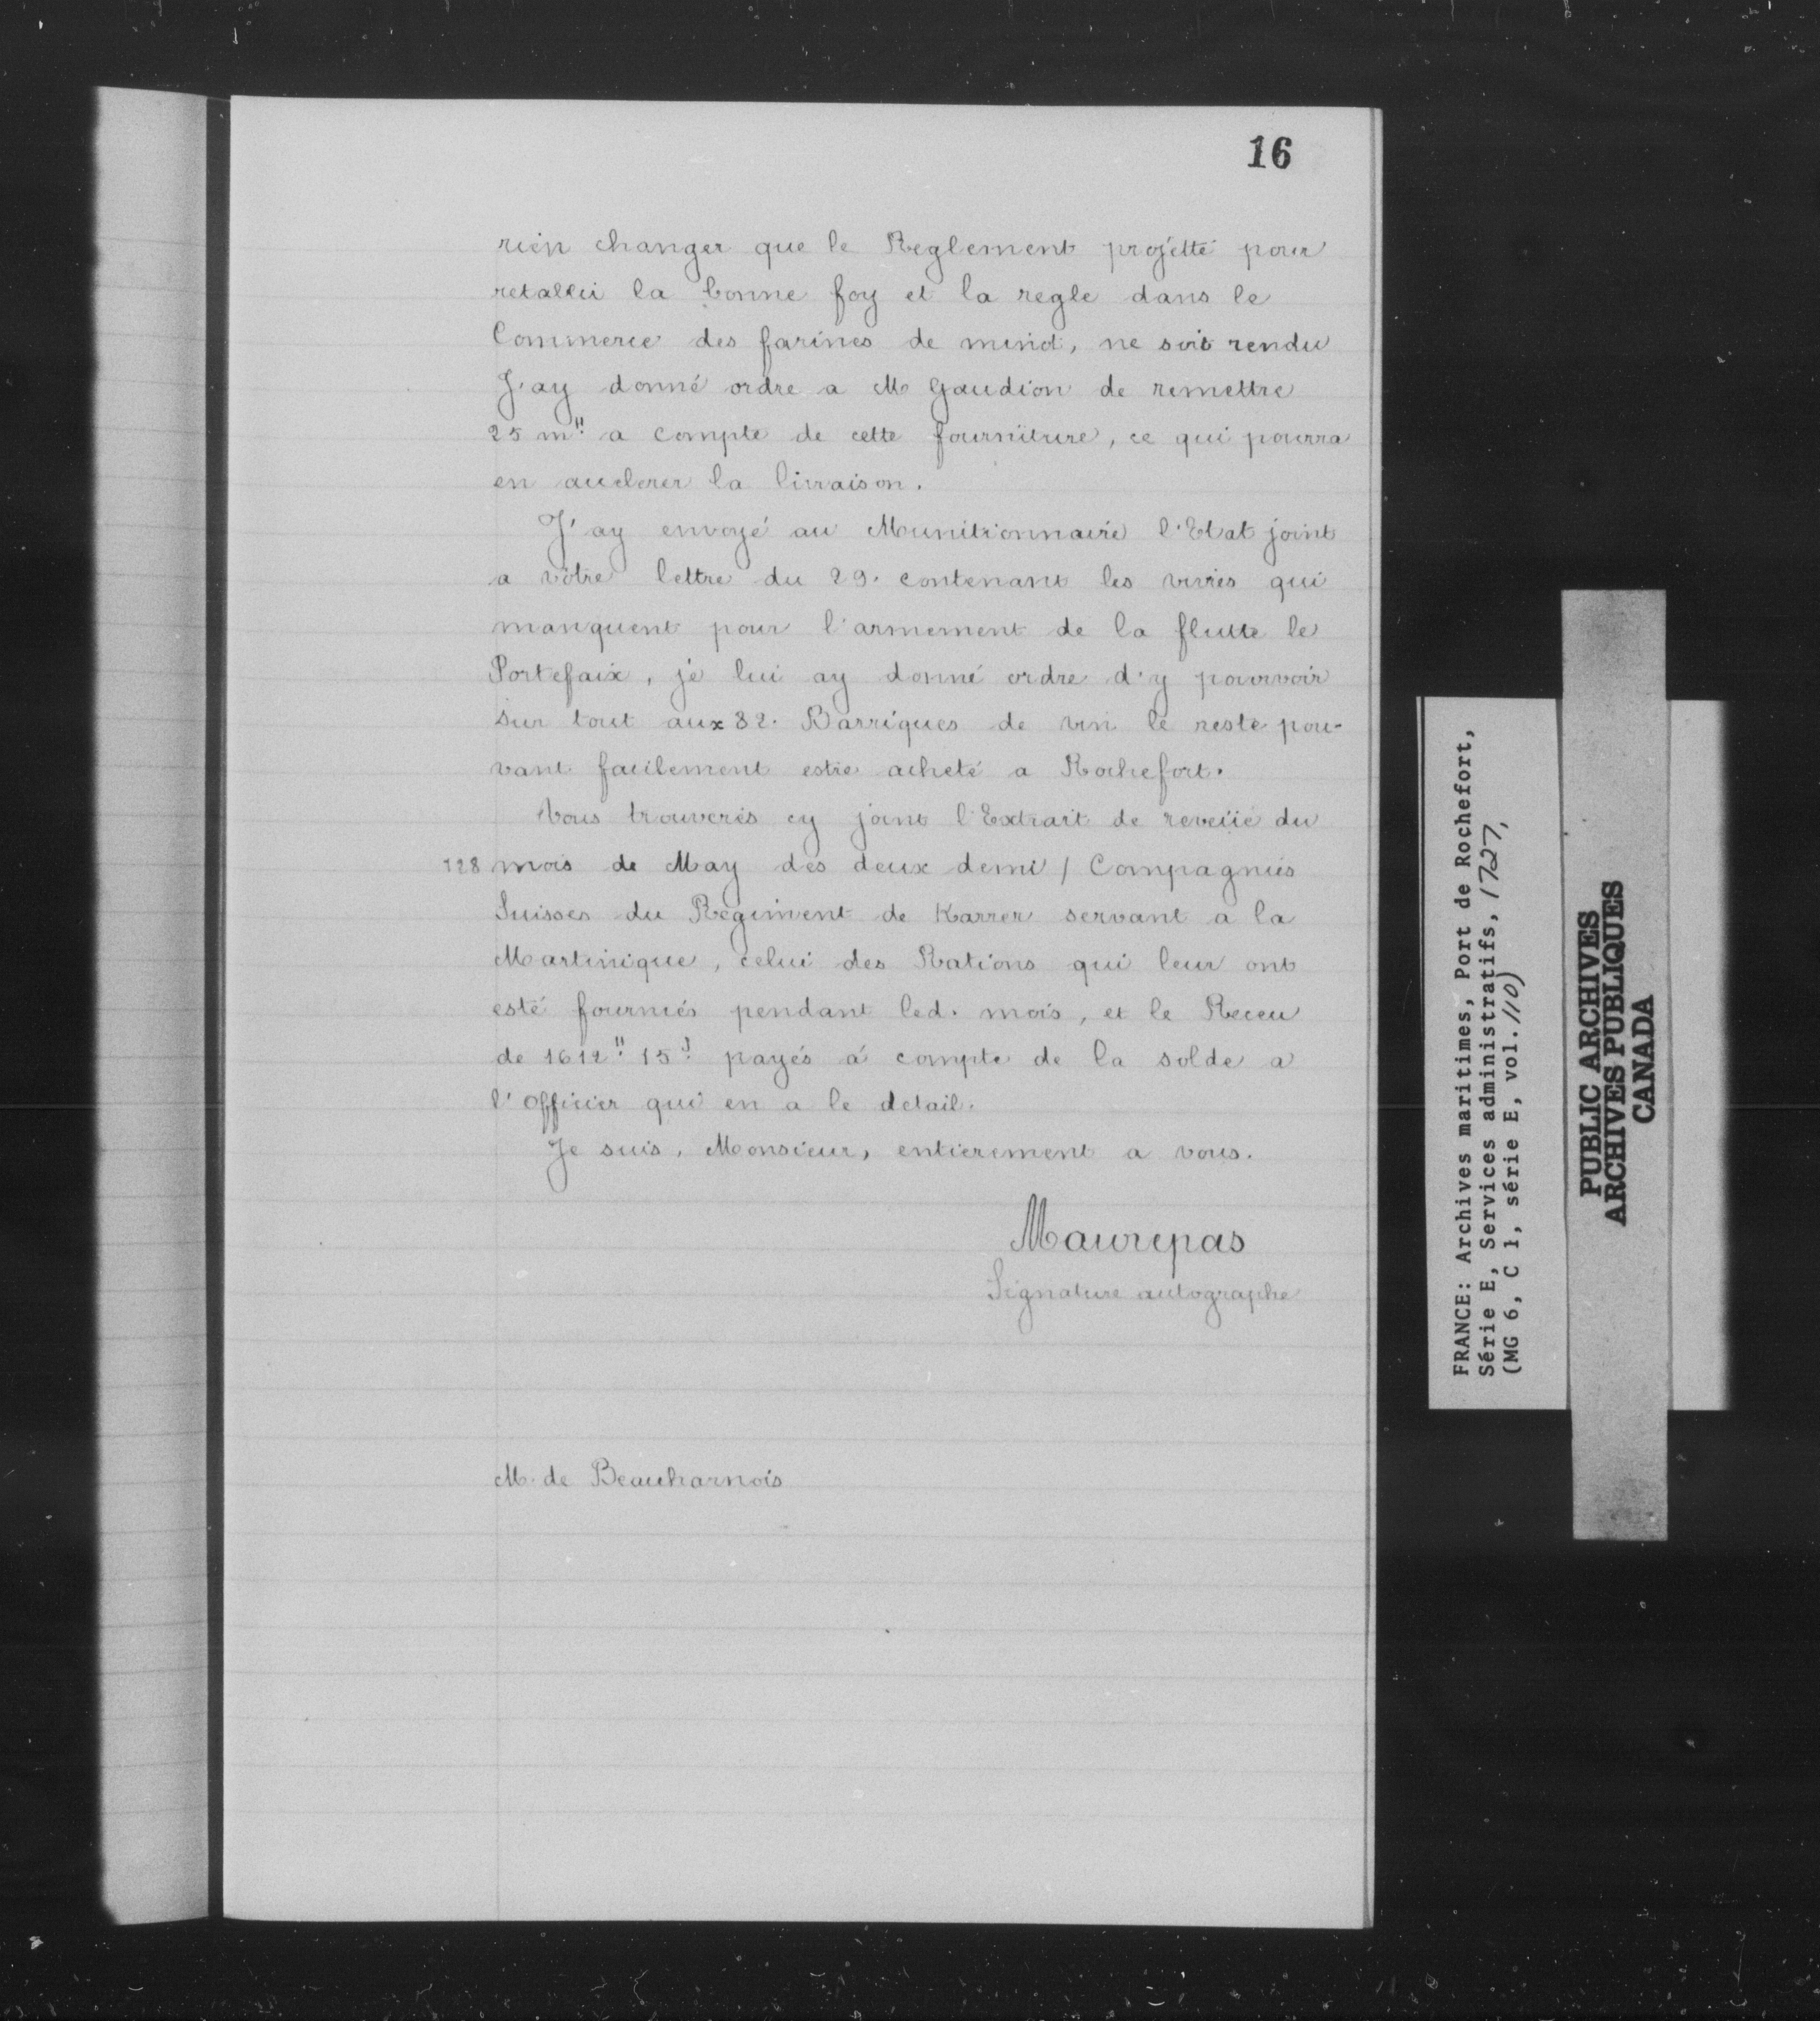 16
rien changer que le Reglement projetté pour
retablir la bonne foy et la regle dans le
Commerce des farines de minot, ne soit rendu
J'ay donné ordre a M Gaudion de remettre
25 m" a compte de cette fourniture, ce qui pourra
en accelerer la livraison.
J'ay envoyé au Munitionnaire l'Etat joint
a vôtre lettre du 29. contenant les vivres qui
manquent pour l'armement de la flutte le
Portefaix, je lui ay donné ordre d'y pourvoir
sur tout aux 82. Barriques de vin le reste pou-
vant facilement estre acheté a Rochefort.
Vous trouverés cy joint l'Extrait de reveüe du
128 mois de May des deux demi / Compagnies
Suisses du Regiment de Karrer servant a la
Martinique, celui des Rations qui leur ont
esté fournies pendant led. mois, et le Receu
de 1612" 15s payés á compte de la solde a
l'officier qui en a le detail.
Je suis, Monsieur, entierement a vous.
Maurepas
Signature autographe
M. de Beauharnois
FRANCE: Archives maritimes, Port de Rochefort,
Série E, Services administratifs, 1727,
(MG 6, C 1, série E, vol. 110)
PUBLIC ARCHIVES
ARCHIVES PUBLIQUES
CANADA